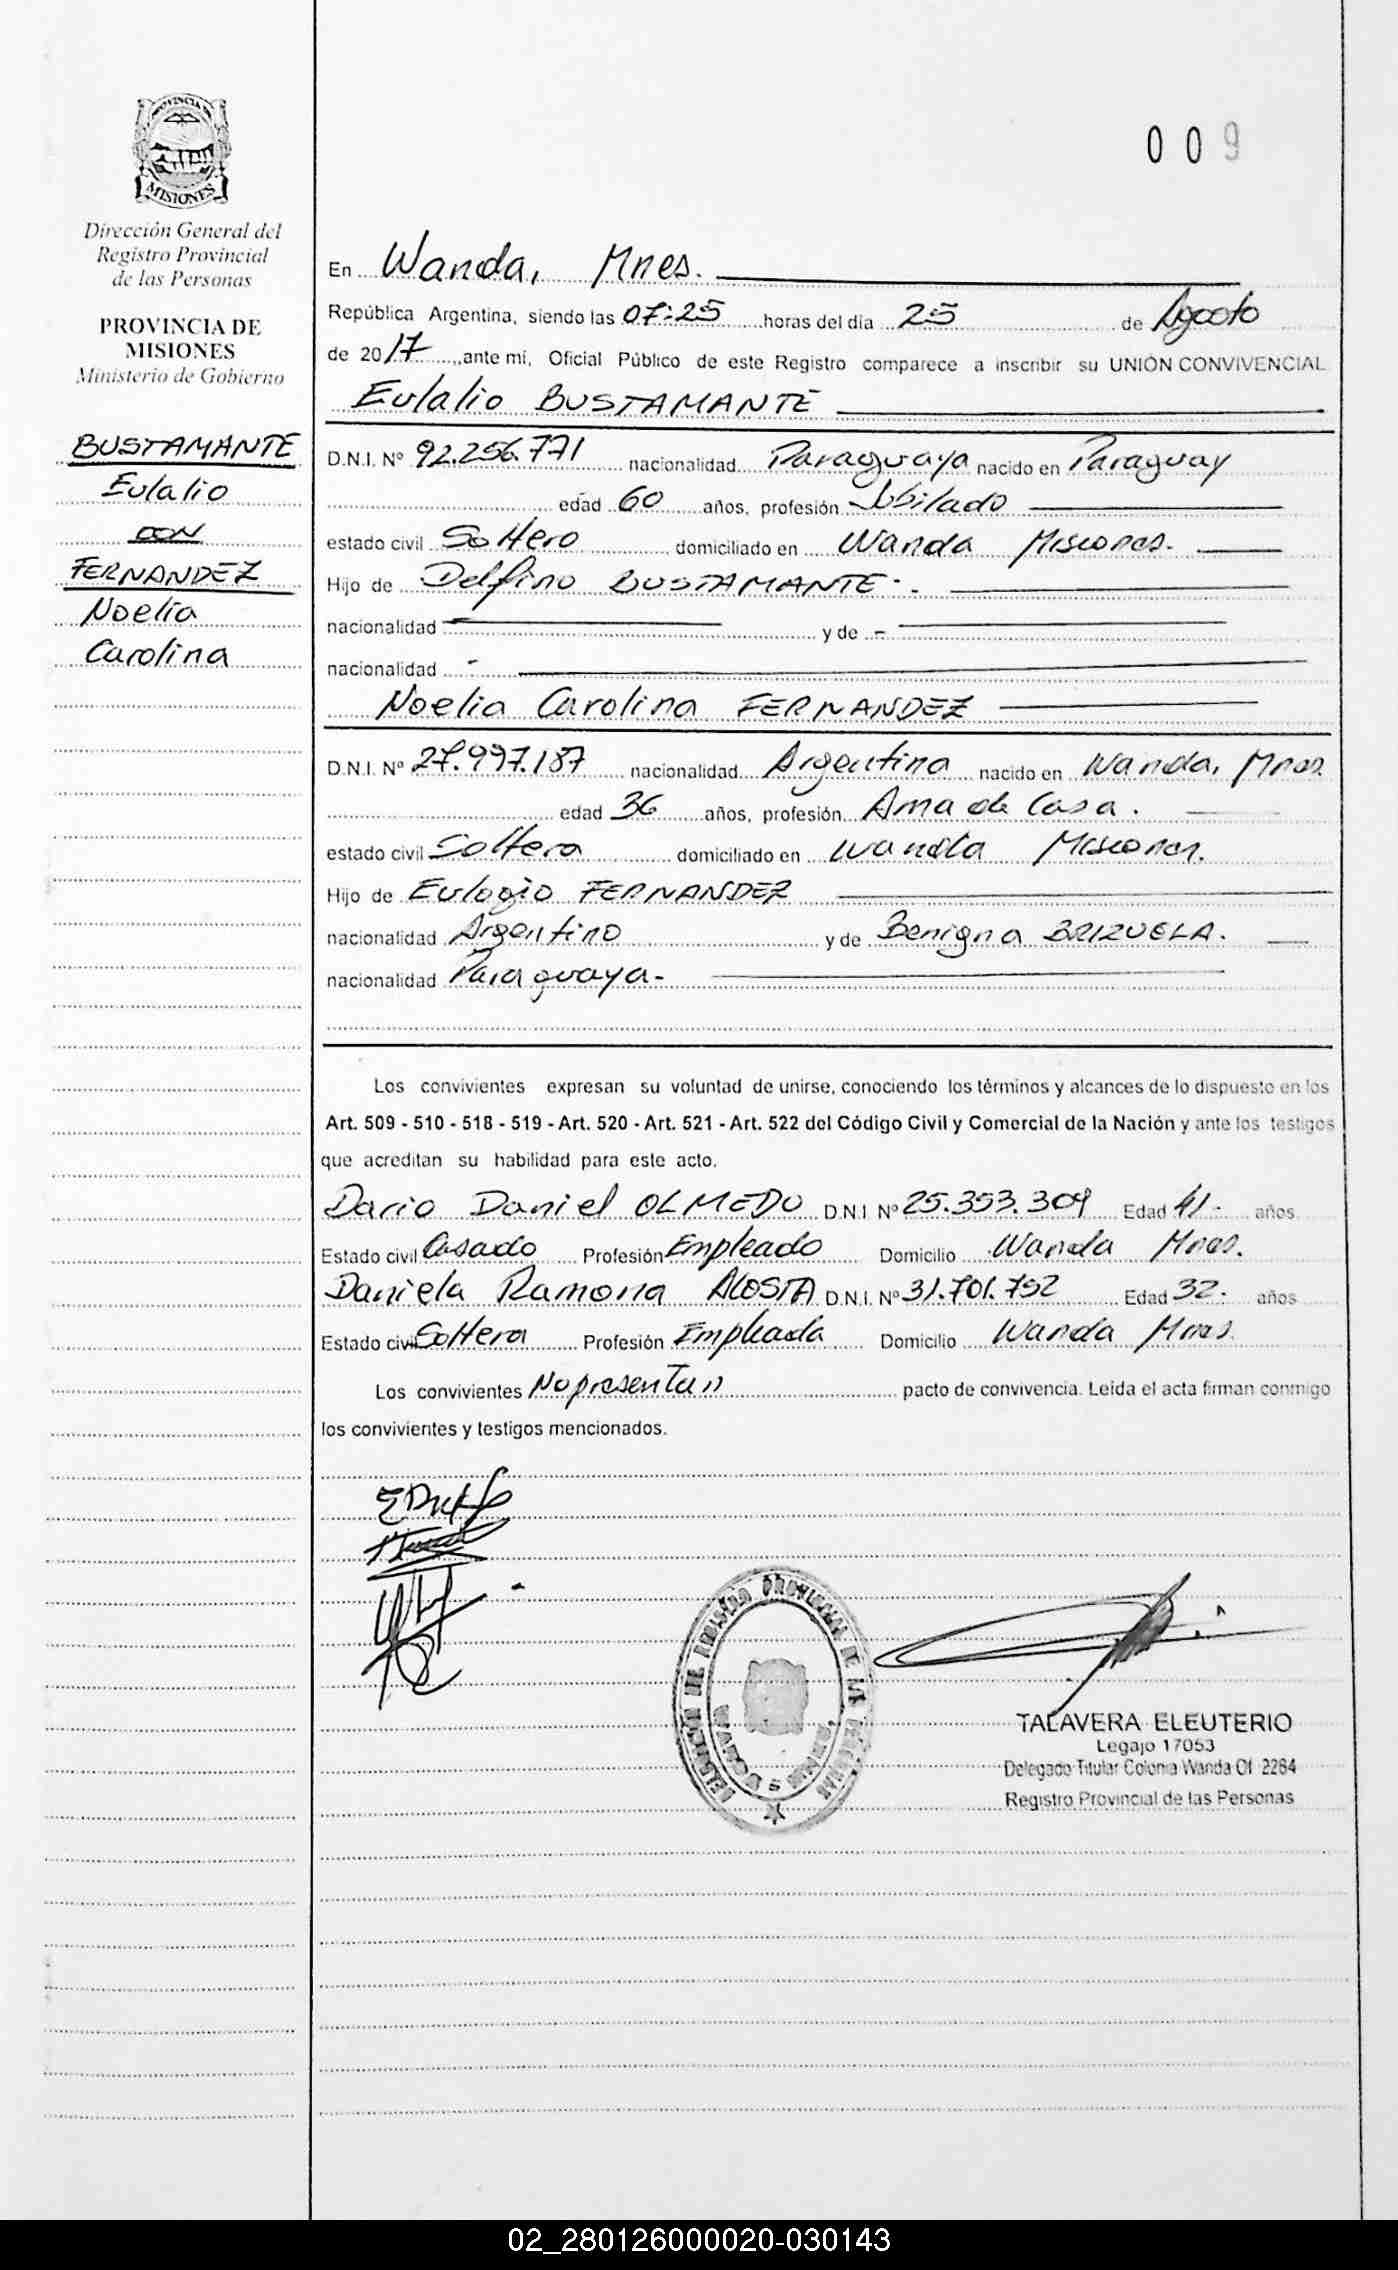 PROVINCIA
MISIONES
Dirección General del
Registro Provincial
de las Personas
PROVINCIA DE
MISIONES
Ministerio de Gobierno
BUSTAMANTE
Eulalio
CON
FERNANDEZ
Noelia
Carolina
009
En Wanda, Mnes.
República Argentina, siendo las 07:25 horas del día 25 de Agosto
de 2017, ante mí, Oficial Público de este Registro comparece a inscribir su UNIÓN CONVIVENCIAL
Eulalio BUSTAMANTE
D.N.I. Nº 92.256.771 nacionalidad Paraguaya nacido en Paraguay
edad 60 años, profesión Jubilado
estado civil Soltero domiciliado en Wanda Misiones.
Hijo de Delfino BUSTAMANTE.
nacionalidad y de -
nacionalidad -
Noelia Carolina FERNANDEZ
D.N.I. Nº 27.997.187 nacionalidad Argentina nacido en Wanda, Mnes.
edad 36 años, profesión Ama de Casa.
estado civil Soltera domiciliado en Wanda Misiones.
Hijo de Eulogio FERNANDEZ
nacionalidad Argentino y de Benigna BRIZUELA.
nacionalidad Paraguaya-
Los convivientes expresan su voluntad de unirse, conociendo los términos y alcances de lo dispuesto en los
Art. 509 - 510 - 518 - 519 - Art. 520 - Art. 521 - Art. 522 del Código Civil y Comercial de la Nación y ante los testigos
que acreditan su habilidad para este acto.
Dario Daniel OLMEDO D.N.I. Nº 25.353.309 Edad 41. años
Estado civil Casado Profesión Empleado Domicilio Wanda Mnes.
Daniela Ramona ACOSTA D.N.I. Nº 31.701.752 Edad 32. años
Estado civil Soltera Profesión Empleada Domicilio Wanda Mnes.
Los convivientes No presentan pacto de convivencia. Leída el acta firman conmigo
los convivientes y testigos mencionados.
PROVINCIAL DE LAS
WANDA
TALAVERA ELEUTERIO
Legajo 17053
Delegado Titular Colonia Wanda Of 2284
Registro Provincial de las Personas
02_280126000020-030143